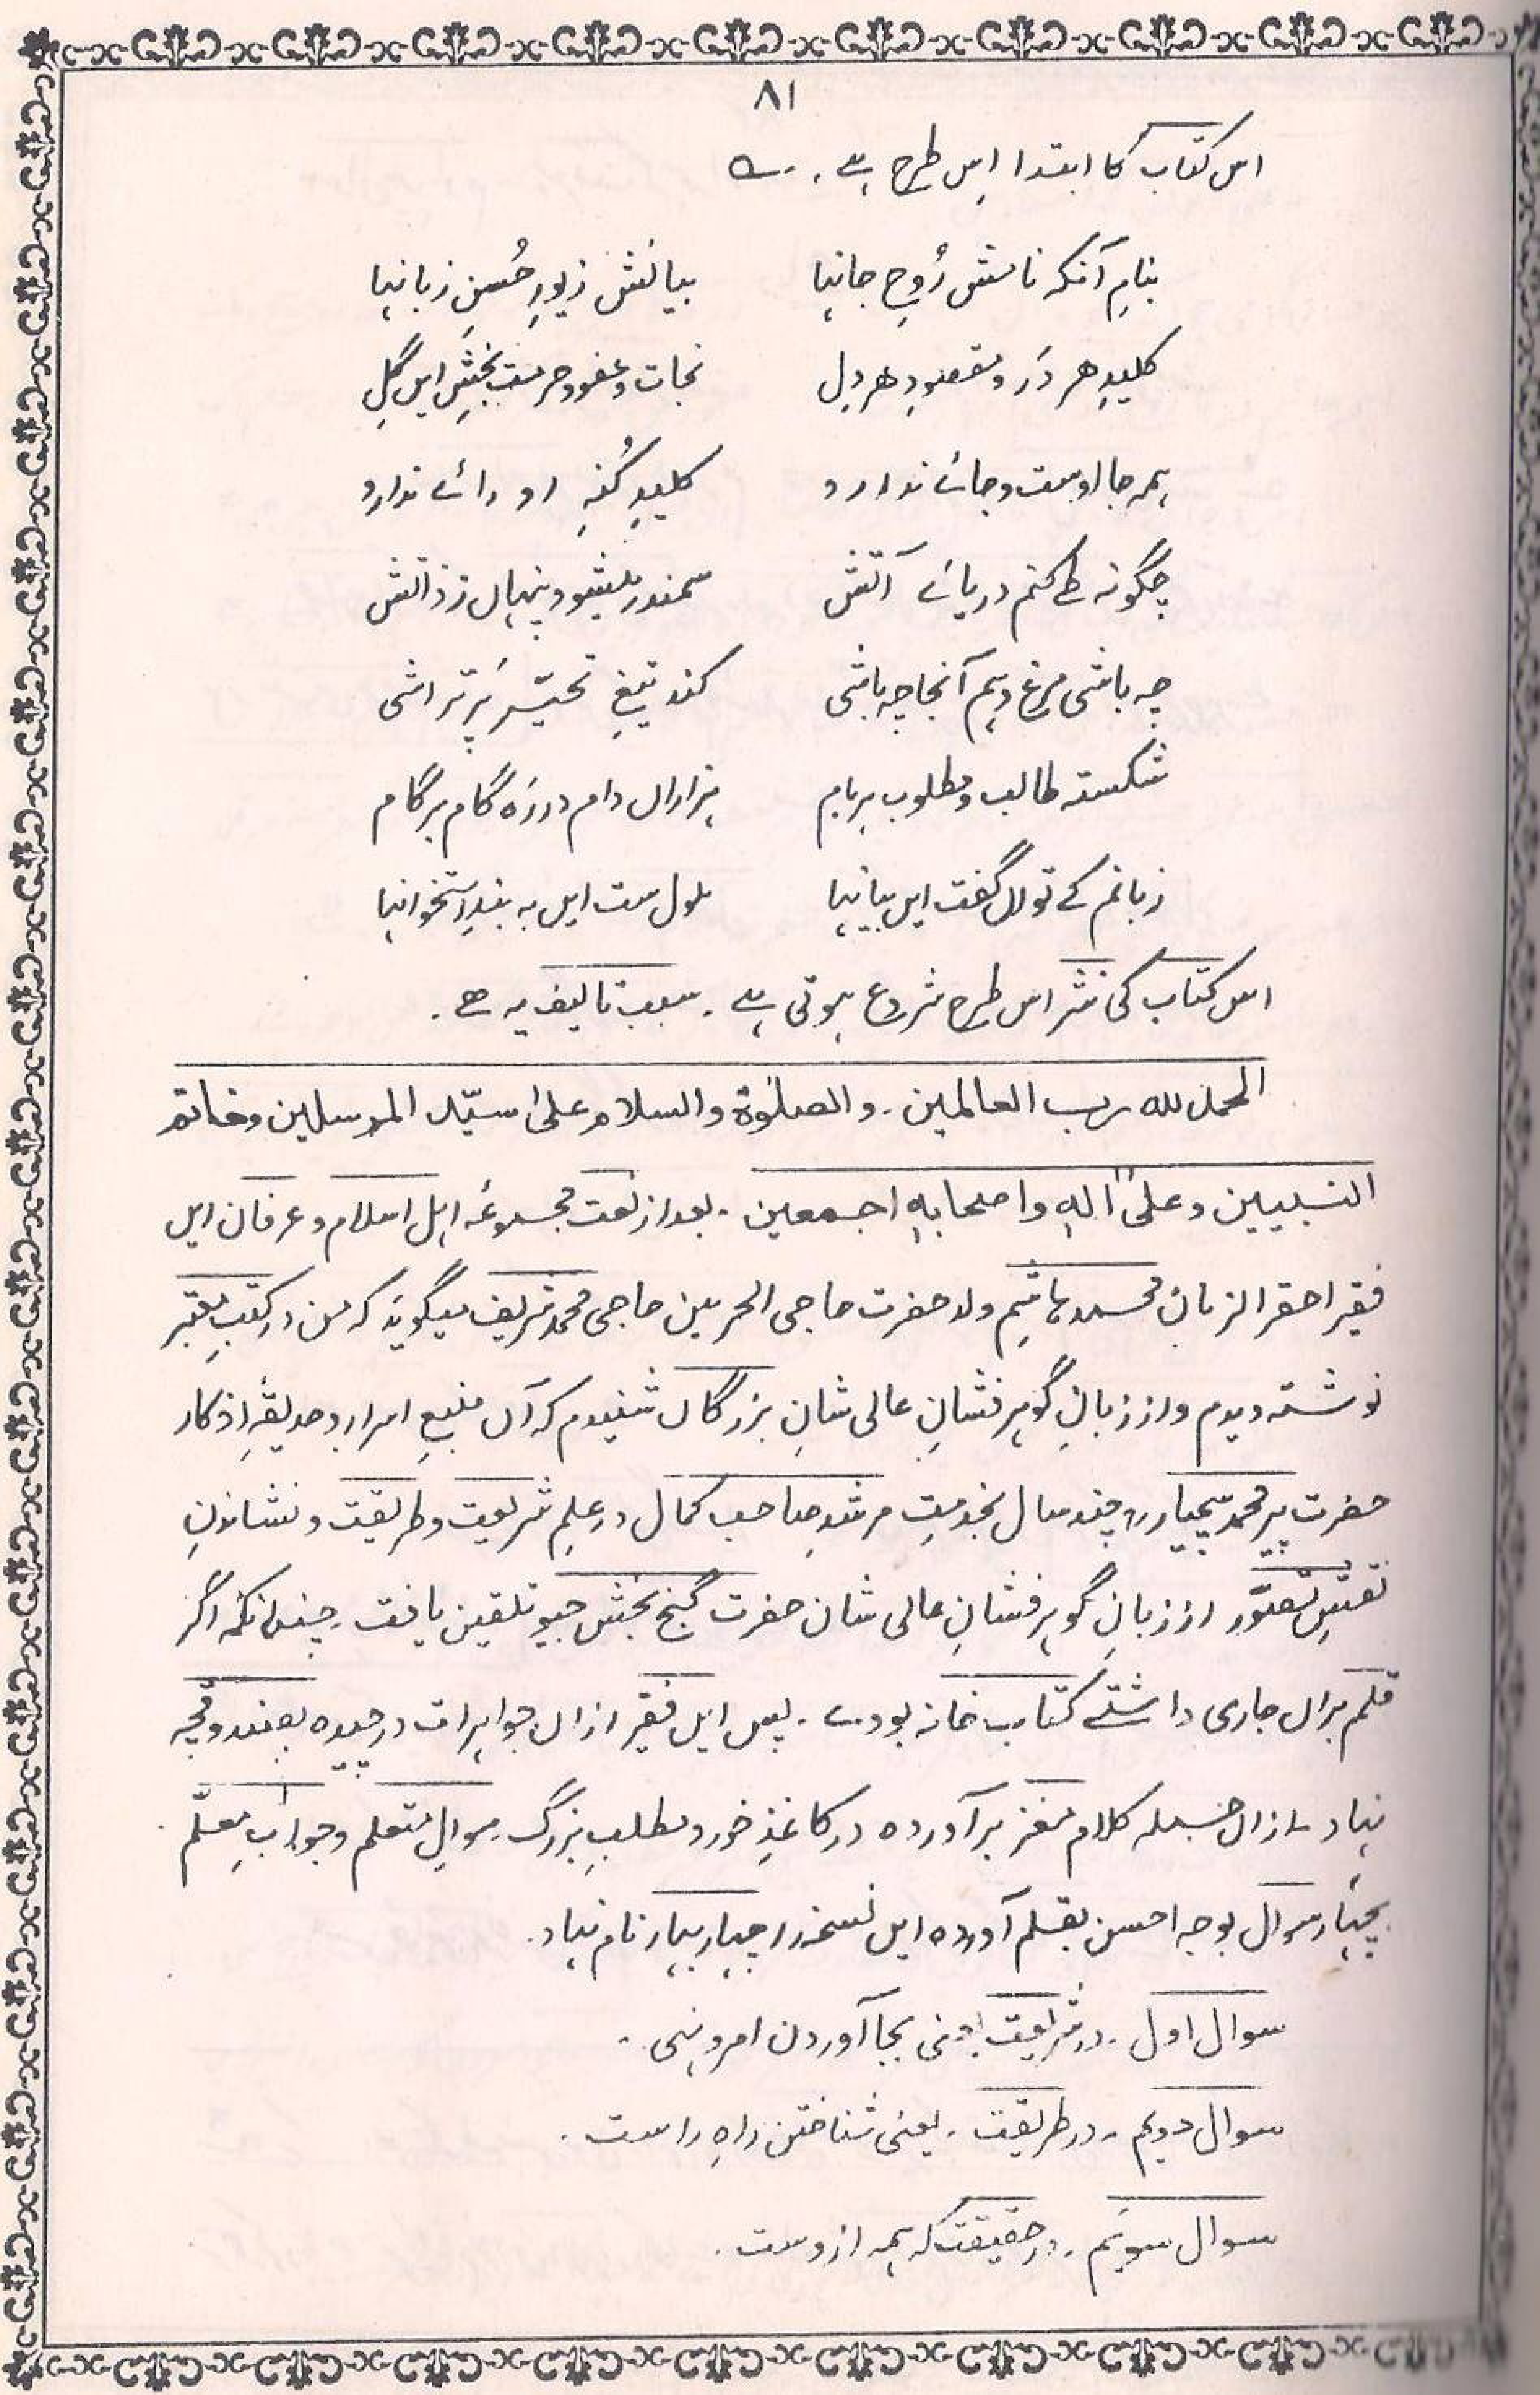 ۸۱
اس کتاب کا ابتدا اِس طرح ہے ۔
بنامِ آنکہ نامش رُوحِ جانہا بیانش زیورِ حُسنِ زبانہا
کلیدِ ھر دَر و مقصودِ ھر دِل نجات و عفو و حرمت بخشِ ایں گِل
ہمہ جا اوست و جائے ندارد کلیدِ کُنہِ او رائے ندارد
چگونہ طے کنم دریائے آتش سمندر میشود پنہاں ز ذاتش
چہ باشی مرغِ وہم آنجا چہ باشی کند تیغِ تحیّر پَر تراشی
شکستہ طالب و مطلوب بر بام ہزاراں دام در رَہ گام بر گام
زبانم کے تواں گفت ایں بیانہا ملول ست ایں بہ بندِ استخوانہا
اس کتاب کی نثر اس طرح شروع ہوتی ہے ۔ سبب تالیف یہ ھے ۔
الحمد للہ رب العالمین ۔ والصلوٰۃ والسلام علیٰ سیّد المرسلین وخاتم
النبیین وعلیٰ اٰلہٖ واصحابہٖ اجمعین ۔ بعد از نعت مجموعۂ اہل اسلام و عرفان ایں
فقیر احقر الزمان محمد ہاشم ولد حضرت حاجی الحرمین حاجی محمد شریف میگوید کہ من در کتبِ معتبر
نوشتہ دیدم و از زبانِ گوہر فشانِ عالی شانِ بزرگاں شنیدم کہ آں منبعِ اسرار و حدیقۂ اذکار
حضرت پیر محمد سچیار رح چند سال بخدمتِ مرشدِ صاحب کمال در علمِ شریعت و طریقت و نشاندنِ
نقشِ تصوّر از زبانِ گوہر فشانِ عالی شان حضرت گنج بخش جیو تلقین یافت ۔ چنانکہ اگر
قلم براں جاری داشتے کتاب خانہ بودے ۔ پس ایں فقیر ازاں جواہرات در چیدہ بصندوقچہ
نہاد ۔ ازاں جملہ کلام مغز برآوردہ در کاغذِ خورد مطلبِ بزرگ ۔ سوالِ متعلم و جوابِ معلّم
بچہار سوال بوجہ احسن بقلم آوردہ ایں نسخہ را چہار بہار نام نہاد ۔
سوال اول ۔ در شریعت یعنی بجا آوردن امر و نہی ۔
سوال دویم ۔ در طریقت ۔ یعنی شناختن راہِ راست ۔
سوال سویَم ۔ در حقیقت کہ ہمہ ازوست ۔